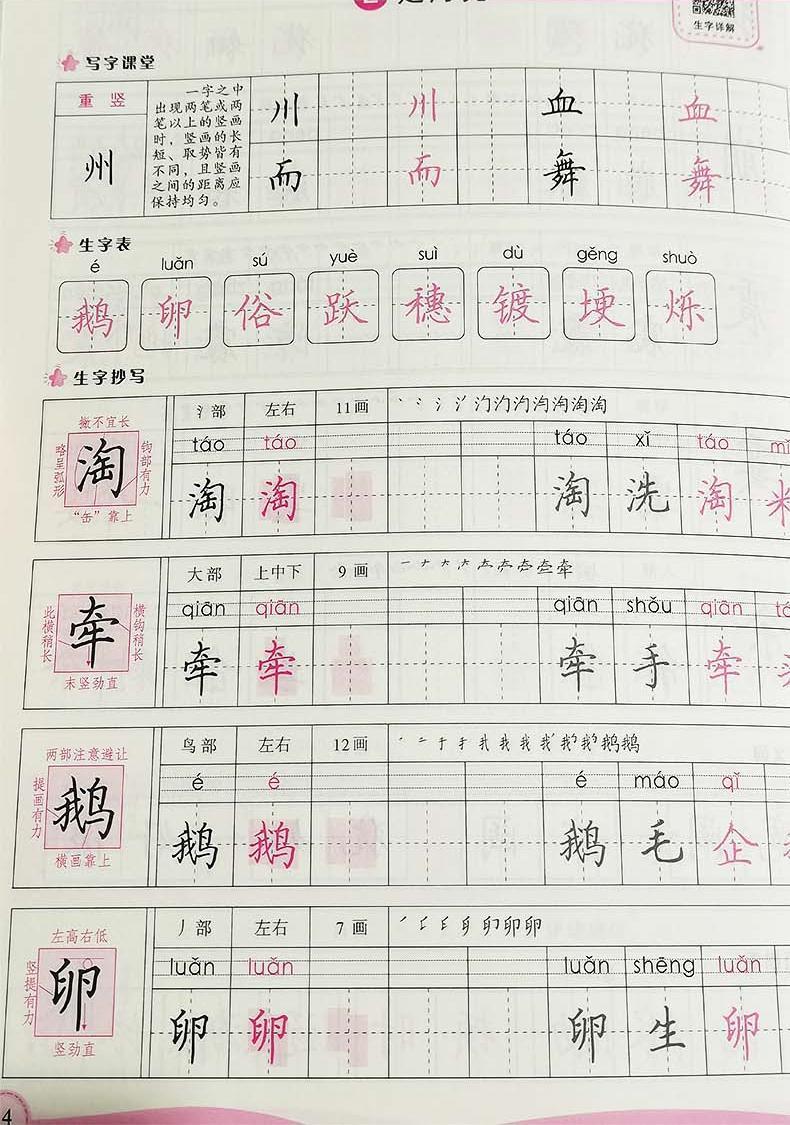 生字详解
写字课堂
重竖
州
一字之中
出现两笔或两
笔以上的竖画
时，竖画的长
短、取势皆有
不同，且竖画
之间的距离应
保持均匀。
川 州 血 血
而 而 舞 舞
生字表
é luǎn sú yuè suì dù gěng shuò
鹅 卵 俗 跃 穗 镀 埂 烁
生字抄写
撇不宜长
略呈弧形
淘
钩部有力
“缶”靠上
氵部 左右 11画
táo táo táo xǐ táo mǐ
淘 淘 淘 洗 淘 米
此横稍长
牵
横钩稍长
末竖劲直
大部 上中下 9画
qiān qiān qiān shǒu qiān
牵 牵 牵 手 牵
两部注意避让
提画有力
鹅
横画靠上
鸟部 左右 12画
é é é máo qǐ
鹅 鹅 鹅 毛 企
左高右低
竖提有力
卵
竖劲直
丿部 左右 7画
luǎn luǎn luǎn shēng luǎn
卵 卵 卵 生 卵
4